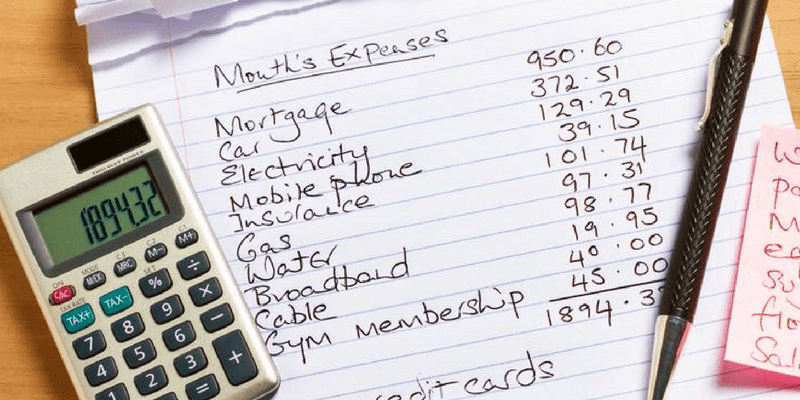 Month's Expenses
Mortgage 950.60
Car 372.51
Electricity 129.29
Mobile phone 39.15
Insurance 101.74
Gas 97.31
Water 98.77
Broadband 19.95
Cable 40.00
Gym Membership 45.00
1894.3
credit cards
TWO WAY POWER
1894.32
ON C/AC MODE M/EX C-1 MRC C-2 M- C-3 M+
TAX RATE TAX+ TAX- SET % ÷
7 8 9 ×
4 5 6 -
1 2 3 +
=